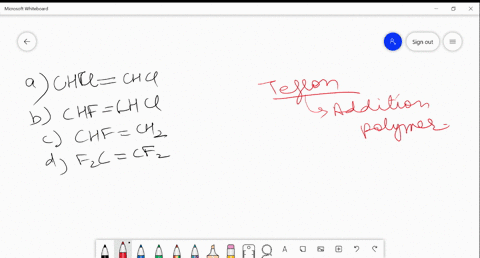 Microsoft Whiteboard
Sign out
a) CHCl = CHCl
b) CHF = CHCl
c) CHF = CH2
d) F2C = CF2
Teflon
Addition
polymer